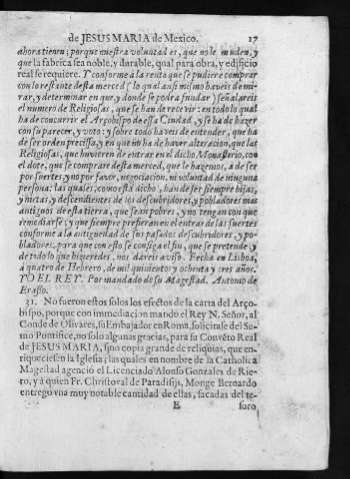 de JESUS MARIA de Mexico. 17
ahora tienen; porque nuestra voluntad es, que no le muden, y
que la fabrica sea noble, y durable, qual para obra, y edificio
real se requiere. Y conforme a la renta que se pudiere comprar
con lo restante desta merced [lo qual ansi mismo haveis de mi-
rar, y determinar en que, y donde se podra fundar] señalareis
el numero de Religiosas, que se han de recevir: en todo lo qual
ha de concurrir el Arçobispo de essa Ciudad, y se ha de hazer
con su parecer, y voto: y sobre todo haveis de entender, que ha
de ser orden precissa, y en que no ha de haver alteracion, que las
Religiosas, que huvieren de entrar en el dicho Monasterio, con
el dote, que se comprare desta merced, que le hazemos, à de ser
por suertes, y no por favor, negociacion, ni voluntad de ninguna
persona: las quales, como está dicho, han de ser siempre hijas,
y nietas, y descendientes de los descubridores, y pobladores mas
antiguos de esta tierra, que sean pobres, y no tengan con que
remediarse: y que siempre prefieran en el entrar de las suertes
conforme a la antiguedad de sus passados descubridores, y po-
bladores, para que con esto se consiga el fin, que se pretende, y
de todo lo que hizieredes, nos dareis aviso. Fecha en Lisboa,
à quatro de Hebrero, de mil quinientos y ochenta y tres años.
YO EL REY. Por mandado de su Magestad. Antonio de
Erasso.
31. No fueron estos solos los efectos de la carta del Arço-
bispo, porque con immediacion mandó el Rey N. Señor, al
Conde de Olivares, su Embajador en Roma, solicitase del Su-
mo Pontifice, no solo algunas gracias, para su Convẽto Real
de JESUS MARIA, sino copia grande de reliquias, que en-
riqueciessen la Iglesia; las quales en nombre de la Catholica
Magestad agenció el Licenciado Alonso Gonzales de Rie-
ro, y à quien Fr. Christoval de Paradisis, Monge Bernardo
entregò vna muy notable cantidad de ellas, sacadas del te-
E soro